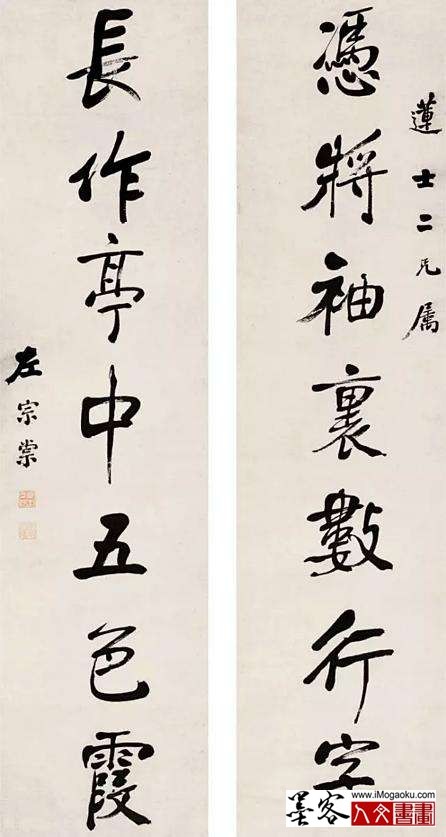 蓮士二兄属
憑將袖裏數行字
長作亭中五色霞
左宗棠
www.iMogaoku.com
墨客
人文書畫